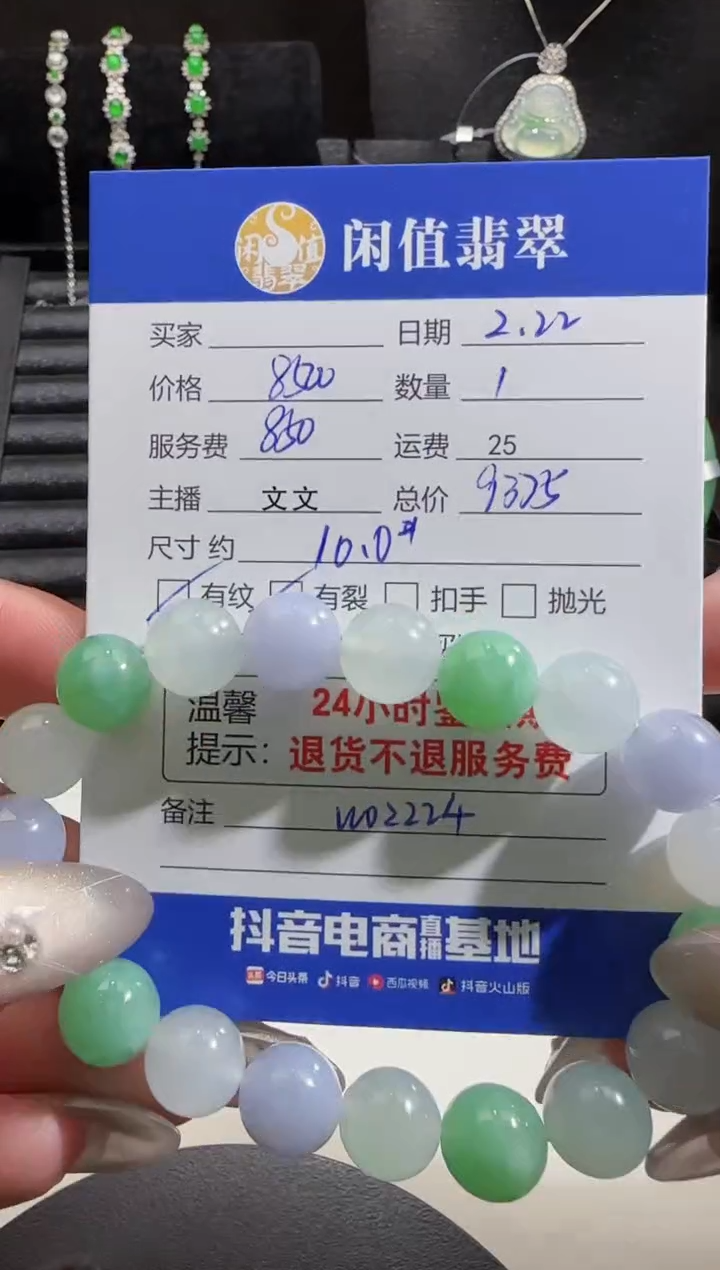 闲值翡翠
闲值翡翠
买家 日期 2.22
价格 8500 数量 1
服务费 850 运费 25
主播 文文 总价 9375
尺寸 约 10.0
有纹 有裂 扣手 抛光
温馨 24小时
提示：退货不退服务费
备注 W02224
抖音电商直播基地
头条 今日头条 抖音 西瓜视频 抖音火山版